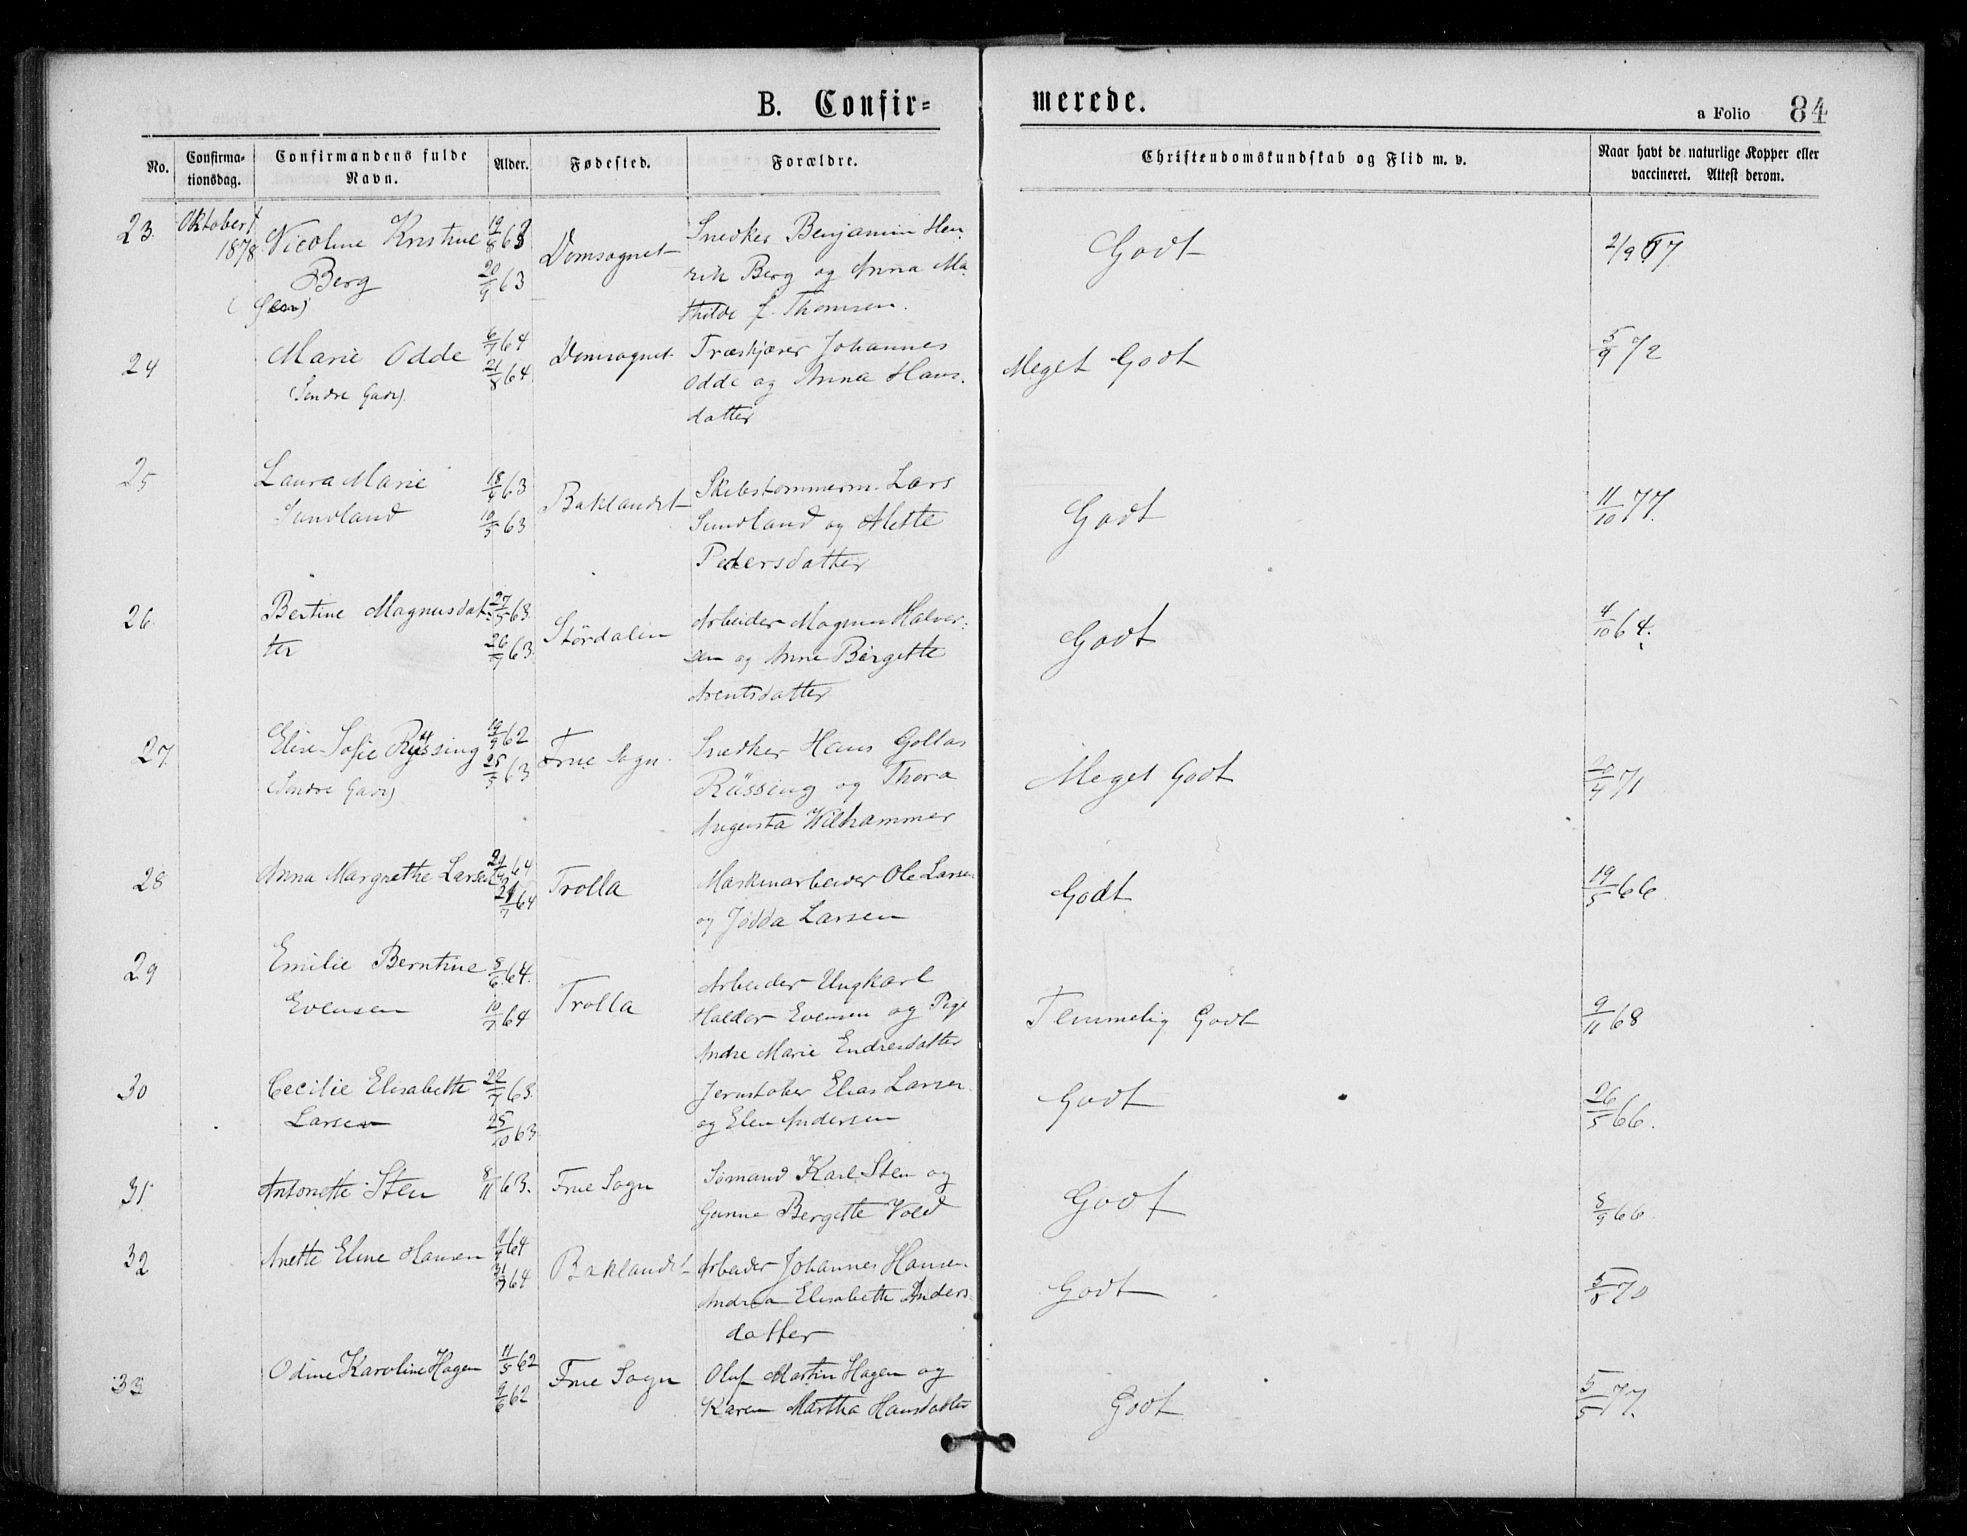 B. Confir= merede.
a Folio 84
No.
Confirma-
tionsdag.
Confirmandens fulde
Navn.
Alder.
Fødested.
Forældre.
Christendomskundskab og Flid m. v.
Naar havt de naturlige Kopper eller
vaccineret. Attest derom.
23 Oktober
1878
Nicoline Kristine
Berg
19/8 63
20/9 63
Domsognet
Snedker Benjamin Hen-
rik Berg og Anna Ma-
thilde f. Thomsen.
Godt
2/9 67
24
Marie Odde
(Søndre Gade).
6/7 64
21/8 64
Domsognet
Træskjærer Johannes
Odde og Anna Hans-
datter
Meget Godt
5/9 72
25
Laura Marie
Sundland
18/4 63
10/5 63
Baklandet
Skibstømmerm. Lars
Sundland og Mette
Pedersdatter
Godt
11/10 77.
26
Bertine Magnusdat-
ter
27/5 63
26/7 63
Størdalen
Arbeider Magnus Halvor-
sen og Anne Bergette
Arentsdatter
Godt
4/10 64.
27
Elise Sofie Rüssing
(Søndre Gade)
19/9 62
25/5 63
Frue Sogn
Snedker Hans
Rüssing og Thora
Augusta Wilhammer
Meget Godt
71
28
Anna Margrethe Larsen
64
21/7 64
Trolla
Maskinarbeider Ole Larsen
og Jødda Larsen
Godt
19/5 66
29
Emilie Berntine
Evensen
8/6 64.
10/7 64
Trolla
Arbeider Ungkarl
Haldor Evensen og Pige
Andre Marie Endresdatter
Temmelig Godt
9/11 68
30
Cecilie Elisabeth
Larsen
22/7 63
25/10 63
Jernstøber Elias Larsen
og Elen Andersen
Godt
26/5 66.
31
Antonette Sten
8/11 63.
Frue Sogn
Sømand Karl Sten og
Gunne Bergette Vold
Godt
8/9 66
32
Anette Eline Hansen
64
64
Baklandet
Arbeider Johannes Hansen
Andrea Elisabeth Anders-
datter
Godt
5/8 70
33
Odine Karoline Hagen
11/5 62
9/6 62
Frue Sogn
Oluf Martin Hagen og
Karen Martha Hansdatter
Godt
5/5 77.